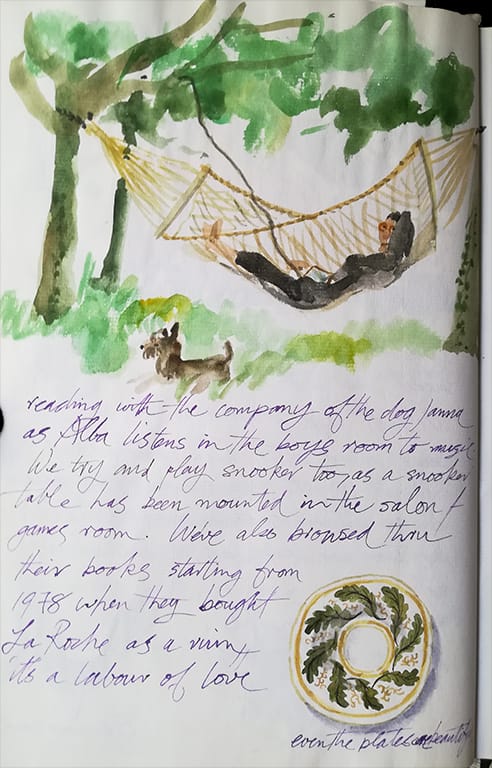 reading with the company of the dog Janna
as Alba listens in the boys room to music
We try and play snooker too, as a snooker
table has been mounted in the salon /
games room. We've also browsed thru
their books starting from
1978 when they bought
La Roche as a ruin,
it's a labour of love
even the plates are beautiful